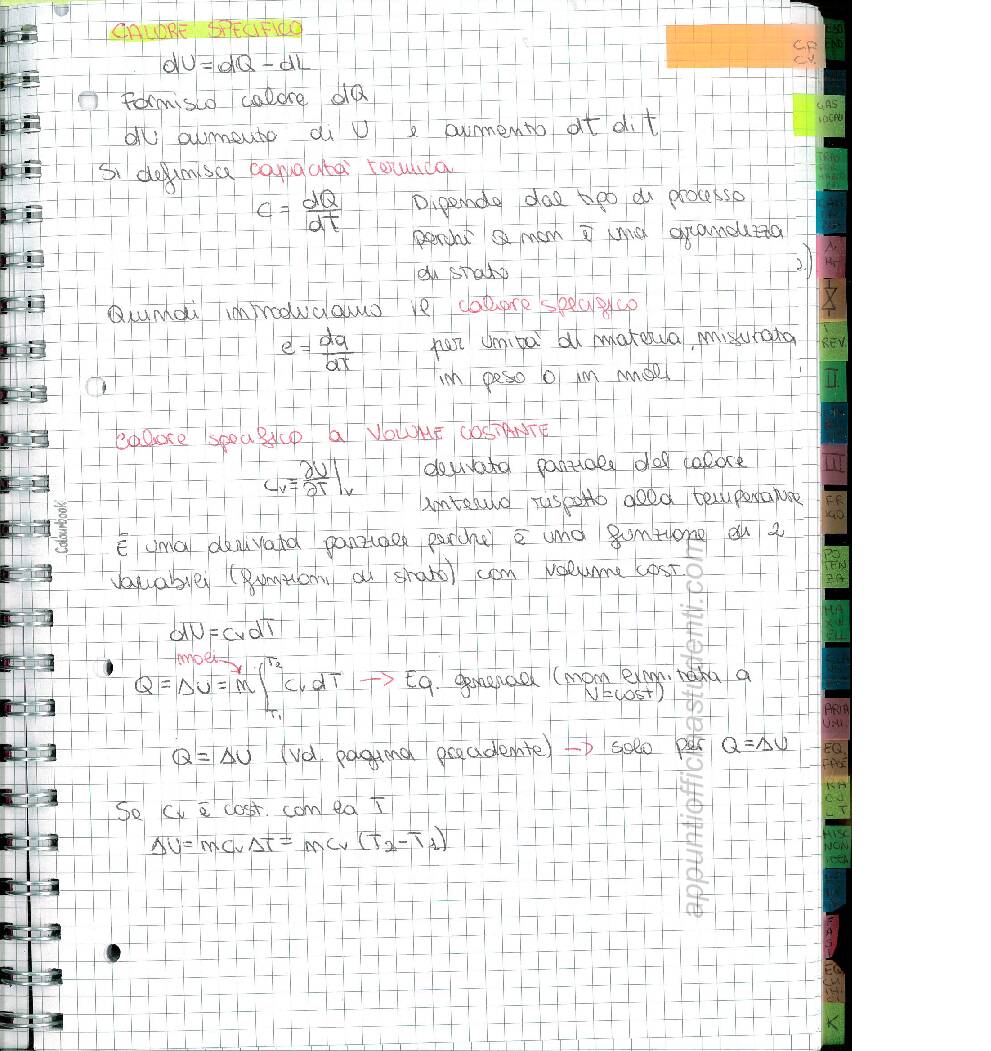 CALORE SPECIFICO
dU = dQ - dL
Fornisco calore dQ
dU aumento di U e aumento dt di t
Si definisce capacità termica
C = dQ/dT Dipende dal tipo di processo
perché Q non è una grandezza
di stato
Quindi introduciamo il calore specifico
c = dq/dT per unità di materia, misurata
in peso o in moli
Calore specifico a VOLUME COSTANTE
Cv = ∂U/∂T|v derivata parziale del calore
interno rispetto alla temperatura
È una derivata parziale perché è una funzione di 2
variabili (funzioni di stato) con volume cost.
dU = cv dT
moli
Q = ΔU = n ∫T1 T2 cv dT → Eq. generali (non limitata a
V=cost)
Q = ΔU (vd. pagina precedente) → solo per Q = ΔU
Se cv è cost. con la T
ΔU = ncvΔT = ncv (T2-T1)
Colourbook
appuntiofficinastudenti.com
CP
CV.
2)
GAS
IDEALI
REV.
II
III
FR
IGO
PO
TEN
ZA
MA
XW
ELL
ARIA
UMI.
EQ.
FASE
MISC
NON
IDEA
K